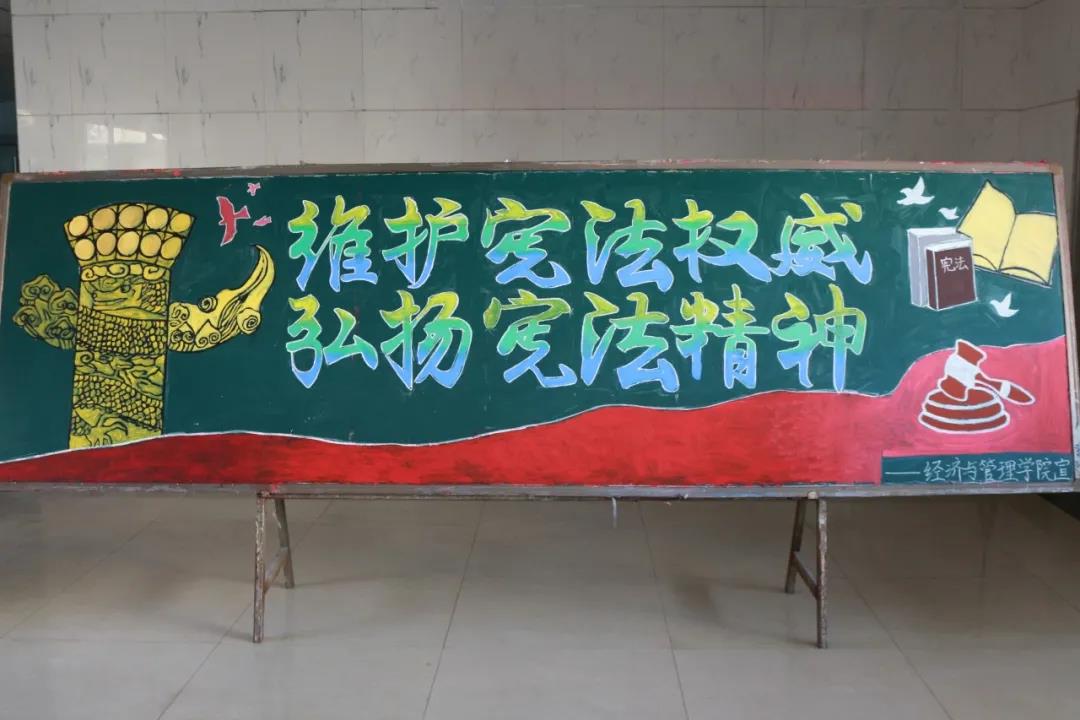 维护宪法权威
弘扬宪法精神
宪法
——经济与管理学院宣